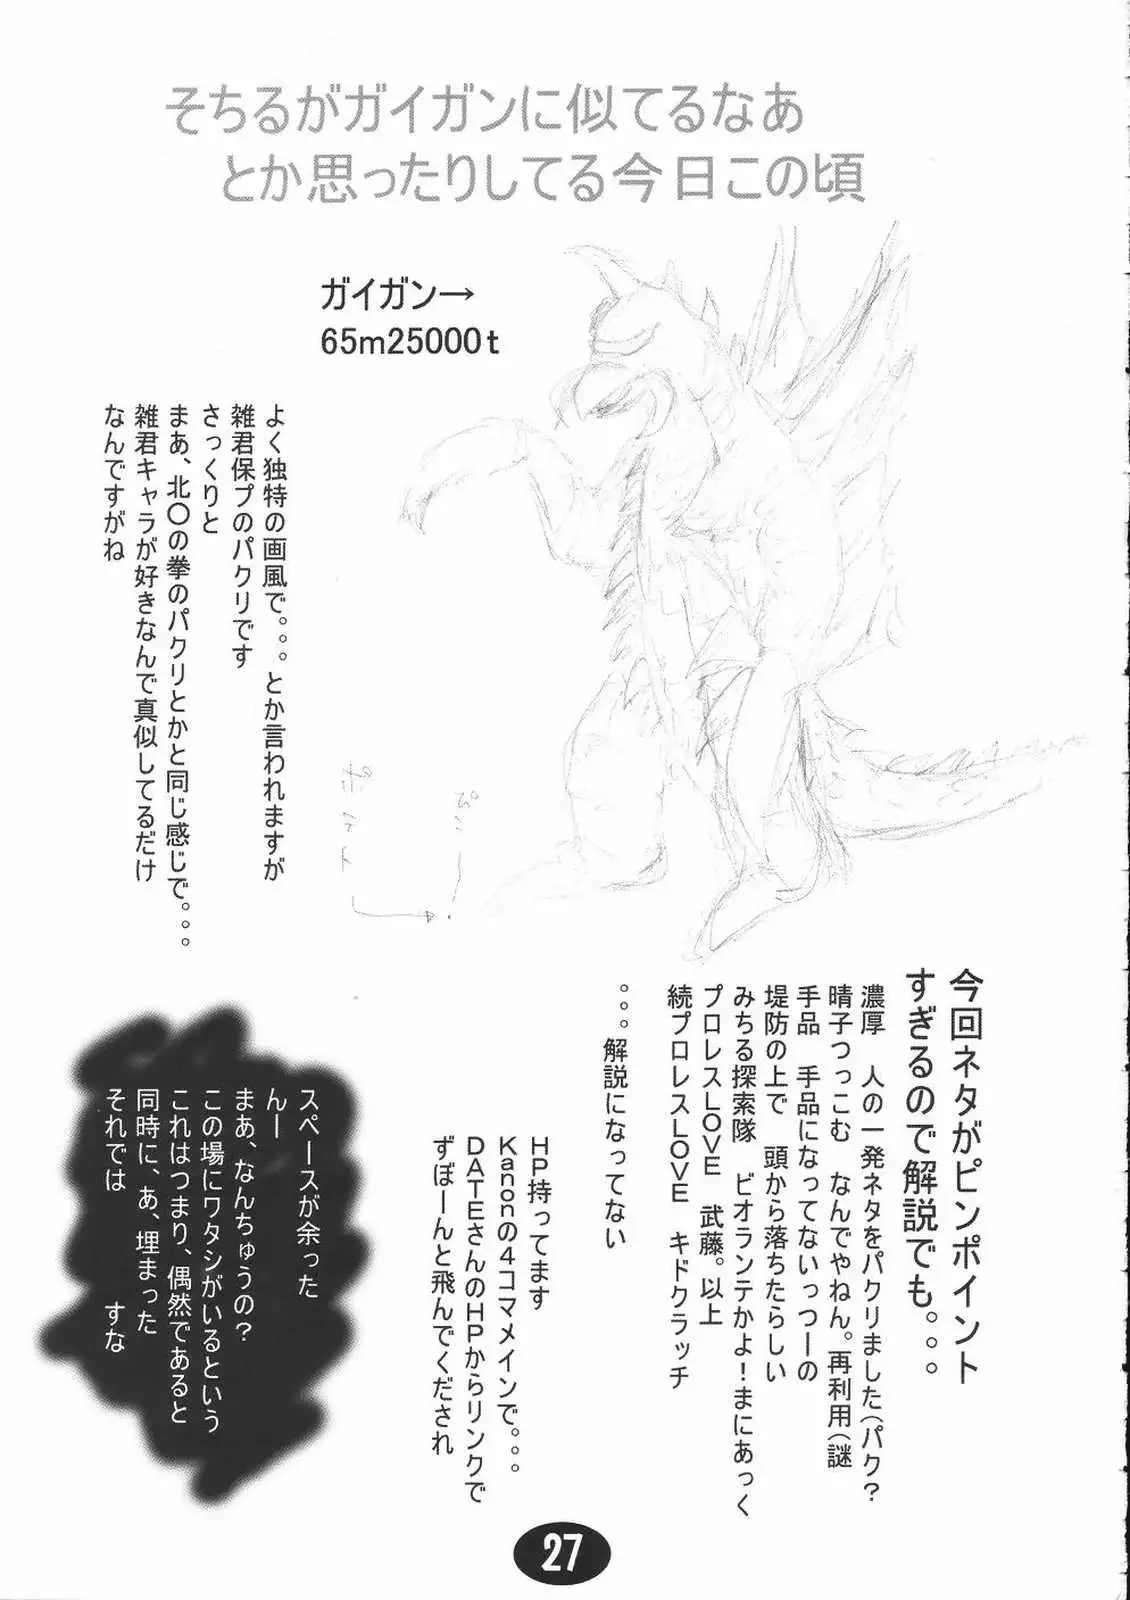 そちるがガイガンに似てるなあ
とか思ったりしてる今日この頃
ガイガン→
65m25000t
よく独特の画風で。。。とか言われますが
雑君保プのパクリです
さっくりと
まあ、北〇の拳のパクリとかと同じ感じで。。。
雑君キャラが好きなんで真似してるだけ
なんですがね
今回ネタがピンポイント
すぎるので解説でも。。。
濃厚　人の一発ネタをパクリました(パク?
晴子つっこむ　なんでやねん。再利用(謎
手品　手品になってないっつーの
堤防の上で　頭から落ちたらしい
みちる探索隊　ビオランテかよ!まにあっく
プロレスLOVE　武藤。以上
続プロレスLOVE　キドクラッチ
。。。解説になってない
HP持ってます
Kanonの4コマメインで。。。
DATEさんのHPからリンクで
ずぼーんと飛んでくだされ
スペースが余った
んー
まあ、なんちゅうの?
この場にワタシがいるという
これはつまり、偶然であると
同時に、あ、埋まった
それでは　　　　すな
27